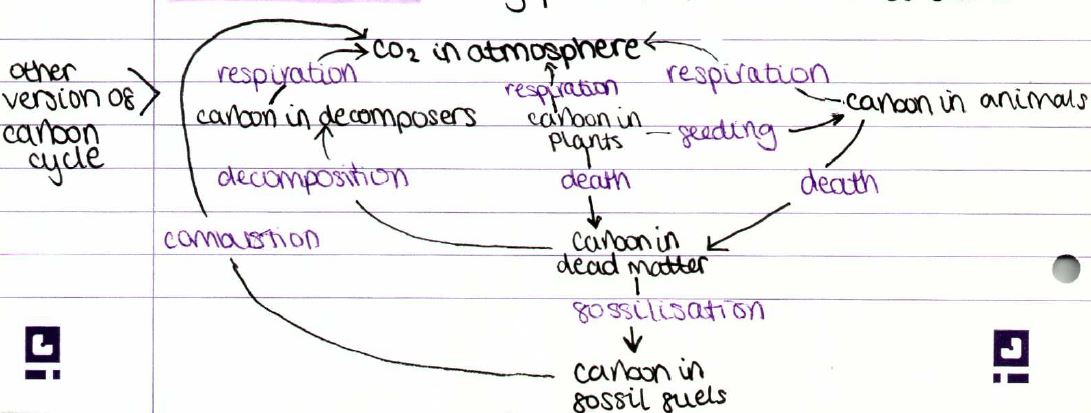 other
version of
carbon
cycle
CO2 in atmosphere
respiration
respiration
respiration
carbon in decomposers
carbon in
plants
feeding
carbon in animals
decomposition
death
death
combustion
carbon in
dead matter
fossilisation
carbon in
fossil fuels